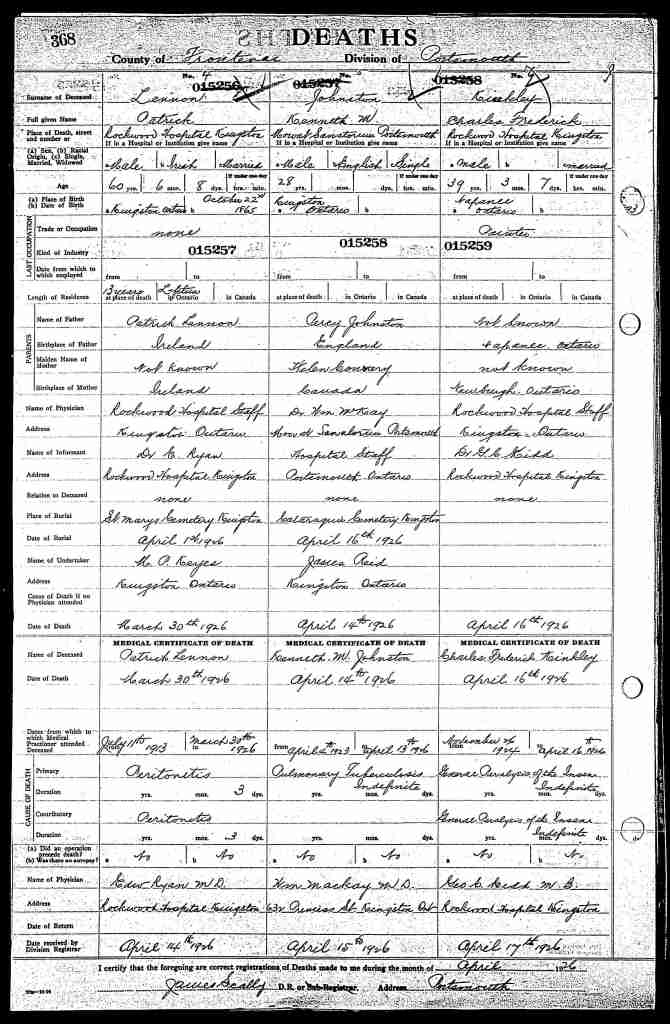 368
DEATHS
County of Frontenac Division of Portsmouth
No. 4
015256 015257 015258
Surname of Deceased Lennon Johnston Kinkley
Full given Name Patrick Kenneth M. Charles Frederick
Place of Death, street and number or Rockwood Hospital Kingston Mowat Sanatorium Portsmouth Rockwood Hospital Kingston
If in a Hospital or Institution give name If in a Hospital or Institution give name If in a Hospital or Institution give name
(a) Sex, (b) Racial Origin, (c) Single, Married, Widowed Male Irish Married Male English Single Male married
Age 60 yrs. 6 mos. 8 dys. If under one day hrs. min. 28 yrs. mos. dys. If under one day hrs. min. 39 yrs. 3 mos. 7 dys. If under one day hrs. min.
(a) Place of Birth (b) Date of Birth a Kingston Ontario b October 22nd 1865 a Kingston Ontario b a Napanee Ontario b
LAST OCCUPATION
Trade or Occupation none Painter
Kind of Industry 015257 015258 015259
Date from which to which employed from to from to from to
Length of Residence 13 years at place of death Lifetime in Ontario in Canada at place of death in Ontario in Canada at place of death in Ontario in Canada
PARENTS
Name of Father Patrick Lennon Percy Johnston Not Known
Birthplace of Father Ireland England Napanee Ontario
Maiden Name of Mother Not Known Helen Connery not known
Birthplace of Mother Ireland Canada Newburgh Ontario
Name of Physician Rockwood Hospital Staff Dr Wm McKay Rockwood Hospital Staff
Address Kingston Ontario Mowat Sanatorium Portsmouth Kingston Ontario
Name of Informant Dr E. Ryan Hospital Staff Dr G. E. Kidd
Address Rockwood Hospital Kingston Portsmouth Ontario Rockwood Hospital Kingston
Relation to Deceased none none none
Place of Burial St. Marys Cemetery Kingston Cataraqui Cemetery Kingston
Date of Burial April 1st 1926 April 16th 1926
Name of Undertaker Keyes James Reid
Address Kingston Ontario Kingston Ontario
Cause of Death if no Physician attended
Date of Death March 30th 1926 April 14th 1926 April 16th 1926
MEDICAL CERTIFICATE OF DEATH MEDICAL CERTIFICATE OF DEATH MEDICAL CERTIFICATE OF DEATH
Name of Deceased Patrick Lennon Kenneth M. Johnston Charles Frederick Kinkley
Date of Death March 30th 1926 April 14th 1926 April 16th 1926
Dates from which to which Medical Practitioner attended Deceased from July 11th 1913 to March 30th 1926 from April 1923 to April 13th 1926 from November 26 1924 to April 16th 1926
CAUSE OF DEATH
Primary Peritonetis Pulmonary Tuberculosis General Paralysis of the Insane
Duration yrs. mos. 3 dys. Indefinite yrs. mos. dys. Indefinite yrs. mos. dys.
Contributory Peritonetis General Paralysis of the Insane
Duration yrs. mos. 3 dys. yrs. mos. dys. Indefinite yrs. mos. dys.
(a) Did an operation precede death? (b) Was there an autopsy? a No b No a No b No a No b No
Name of Physician Edw Ryan M.D. Wm Mackay M.D. Geo E Kidd M.B.
Address Rockwood Hospital Kingston 632 Princess St Kingston Ont Rockwood Hospital Kingston
Date of Return
Date received by Division Registrar April 14th 1926 April 15th 1926 April 17th 1926
I certify that the foregoing are correct registrations of Deaths made to me during the month of April 1926
James Scally D.R. or Sub-Registrar. Address Portsmouth